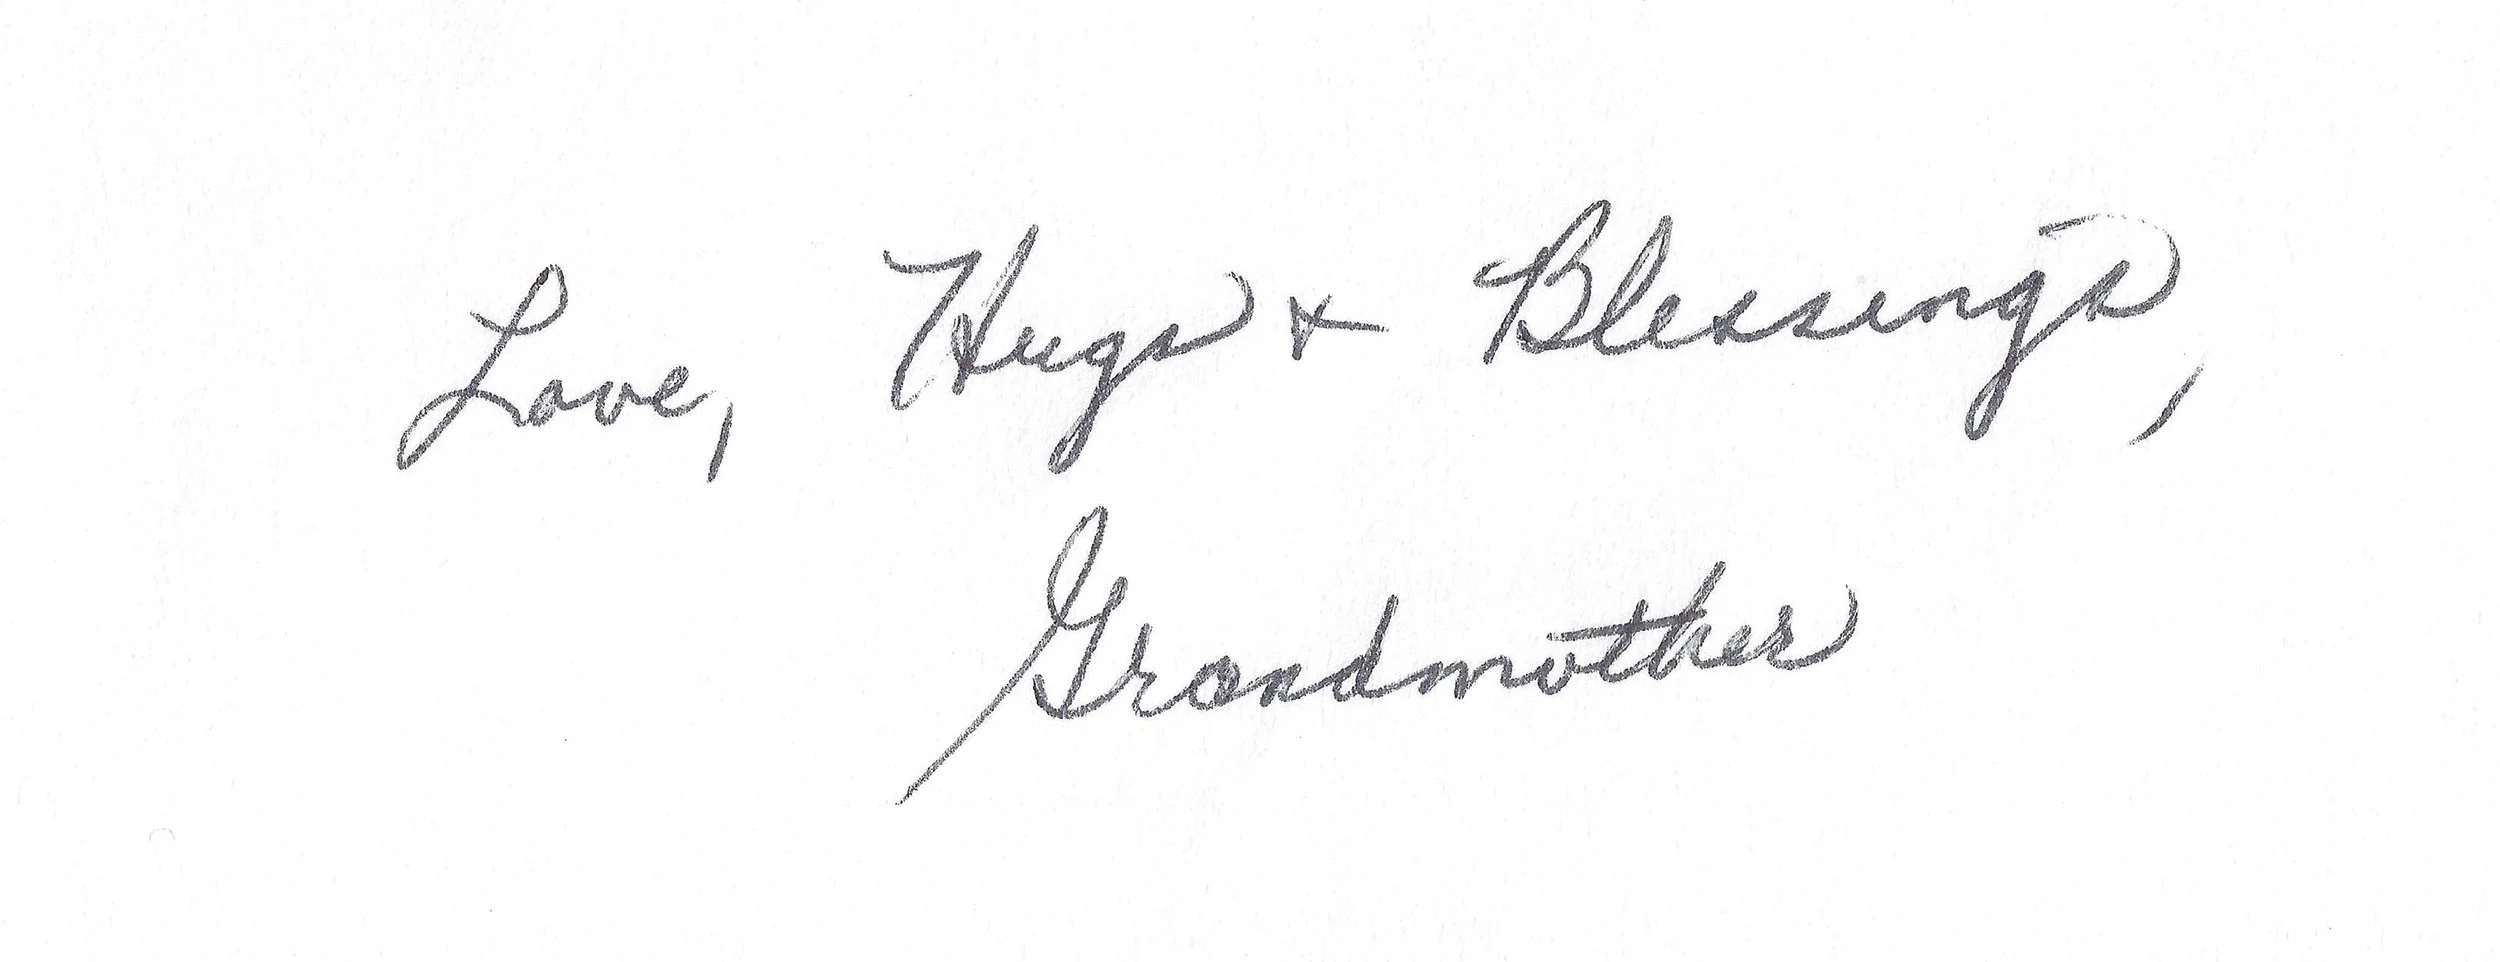 Love, Hugs + Blessings,
Grandmother